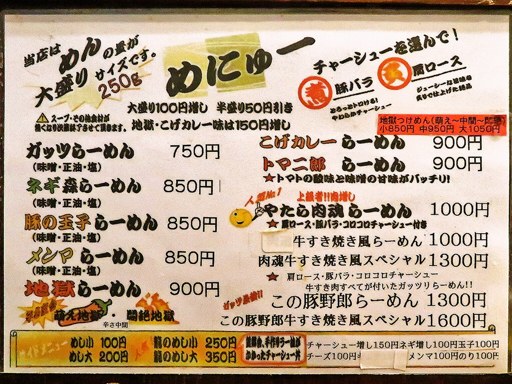 当店は
めんの量が
大盛りサイズです。
250g
めにゅー
チャーシューを選んで!
煮 豚バラ
炙 肩ロース
大盛り100円増し 半盛り50円引き
地獄・こげカレー味は150円増し
地獄つけめん(萌え~中間~悶絶)
小850円 中950円 大1050円
ガッツらーめん 750円
(味噌・正油・塩)
ネギ森らーめん 850円
(味噌・正油・塩)
豚の王子らーめん 850円
(味噌・正油・塩)
メンマらーめん 850円
(味噌・正油・塩)
地獄らーめん 900円
萌え地獄・悶絶地獄
辛さ中間
こげカレーらーめん 900円
トマ二郎 らーめん 900円
★トマトの酸味と味噌の甘味がバッチリ!
人気No.1
上級者!!肉増し
やたら肉魂らーめん 1000円
★肩ロース・豚バラ・コロコロチャーシュー付き
牛すき焼き風らーめん 1000円
肉魂牛すき焼き風らーめん 1300円
★肩ロース・豚バラ・コロコロチャーシュー
牛すき肉すべてが付いたガッツリらーめん!!
この豚野郎らーめん 1300円
この豚野郎牛すき焼き風らーめん 1600円
めし小 100円
めし大 200円
豚めし小 250円
豚めし大 350円
チャーシュー増し150円ネギ増し100円玉子100円
チーズ100円
メンマ100円のり100円